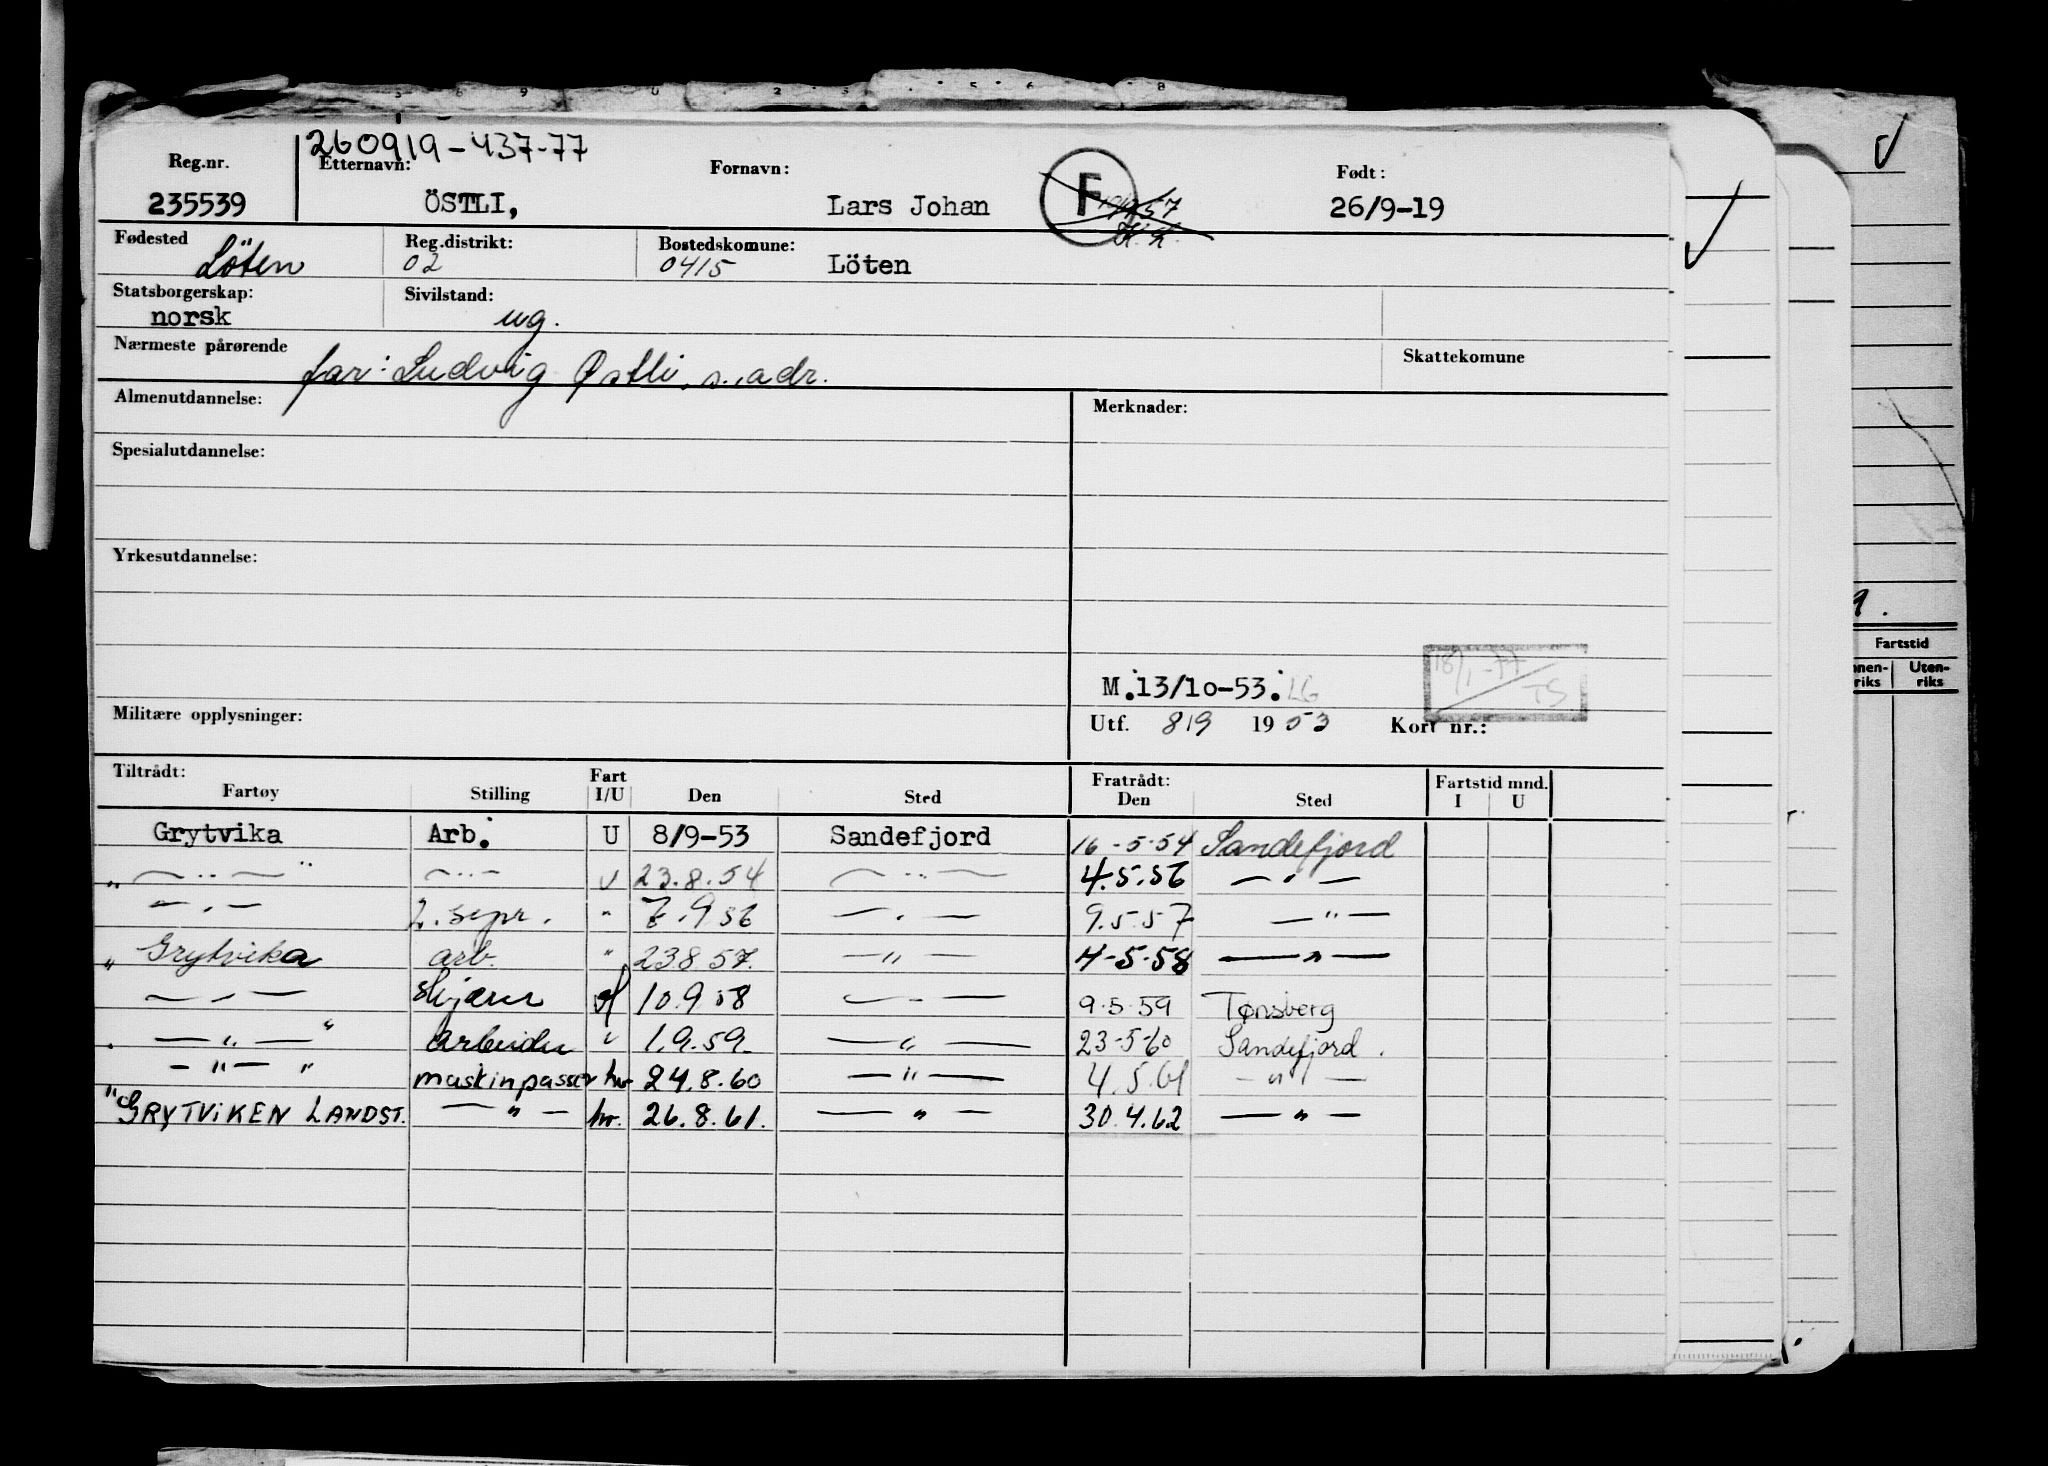 260919-437-77
Reg.nr. Etternavn: Fornavn: Født:
235539 ÖSTLI, Lars Johan F 26/9-19
Fødested Reg.distrikt: Bostedskomune:
Löten 02 0415 Löten
Statsborgerskap: Sivilstand:
norsk ug.
Nærmeste pårørende Skattekomune
far: Ludvig Østli, s. adr.
Almenutdannelse: Merknader:
Spesialutdannelse:
Yrkesutdannelse:
M. 13/10-53. LG 18/1-77 TS
Militære opplysninger: Utf. 8/9 1953 Kort nr.:
Tiltrådt: Fratrådt: Fartstid mnd.
Fartøy Stilling Fart I/U Den Sted Den Sted I U
Grytvika Arb. U 8/9-53 Sandefjord 16-5-54 Sandefjord
" — " — " — " — U 23.8.54 — " — 4.5.56 — " —
— " — 2. sepr. " 7.9 56 — " — 9.5.57 — " —
" Grytvika arb. " 23 8 57. — " — 4-5-58 — " —
— " — 10.9.58 — " — 9.5.59 Tønsberg
— " — " arbeider " 1.9.59. — " — 23-5-60 Sandefjord.
— " — " maskinpasser hv 24.8.60 — " — 4.5.61 — " —
" GRYTVIKEN LANDST. — " — hv. 26.8.61. — " — 30.4.62 — " —
9.
Fartstid
nnen-riks Uten-riks